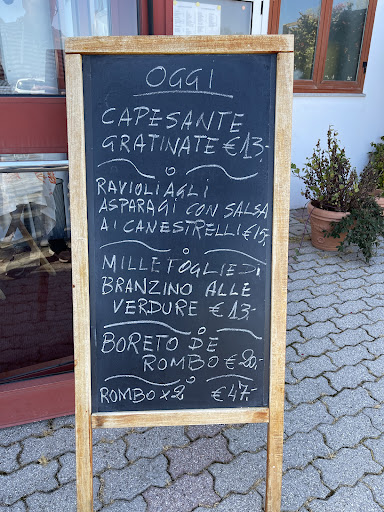 OGGI
CAPESANTE
GRATINATE €13.-
RAVIOLI AGLI
ASPARAGI CON SALSA
AI CANESTRELLI €15,-
MILLEFOGLIE DI
BRANZINO ALLE
VERDURE €13.-
BORETO DE
ROMBO €20,-
ROMBO x 2 €47.-